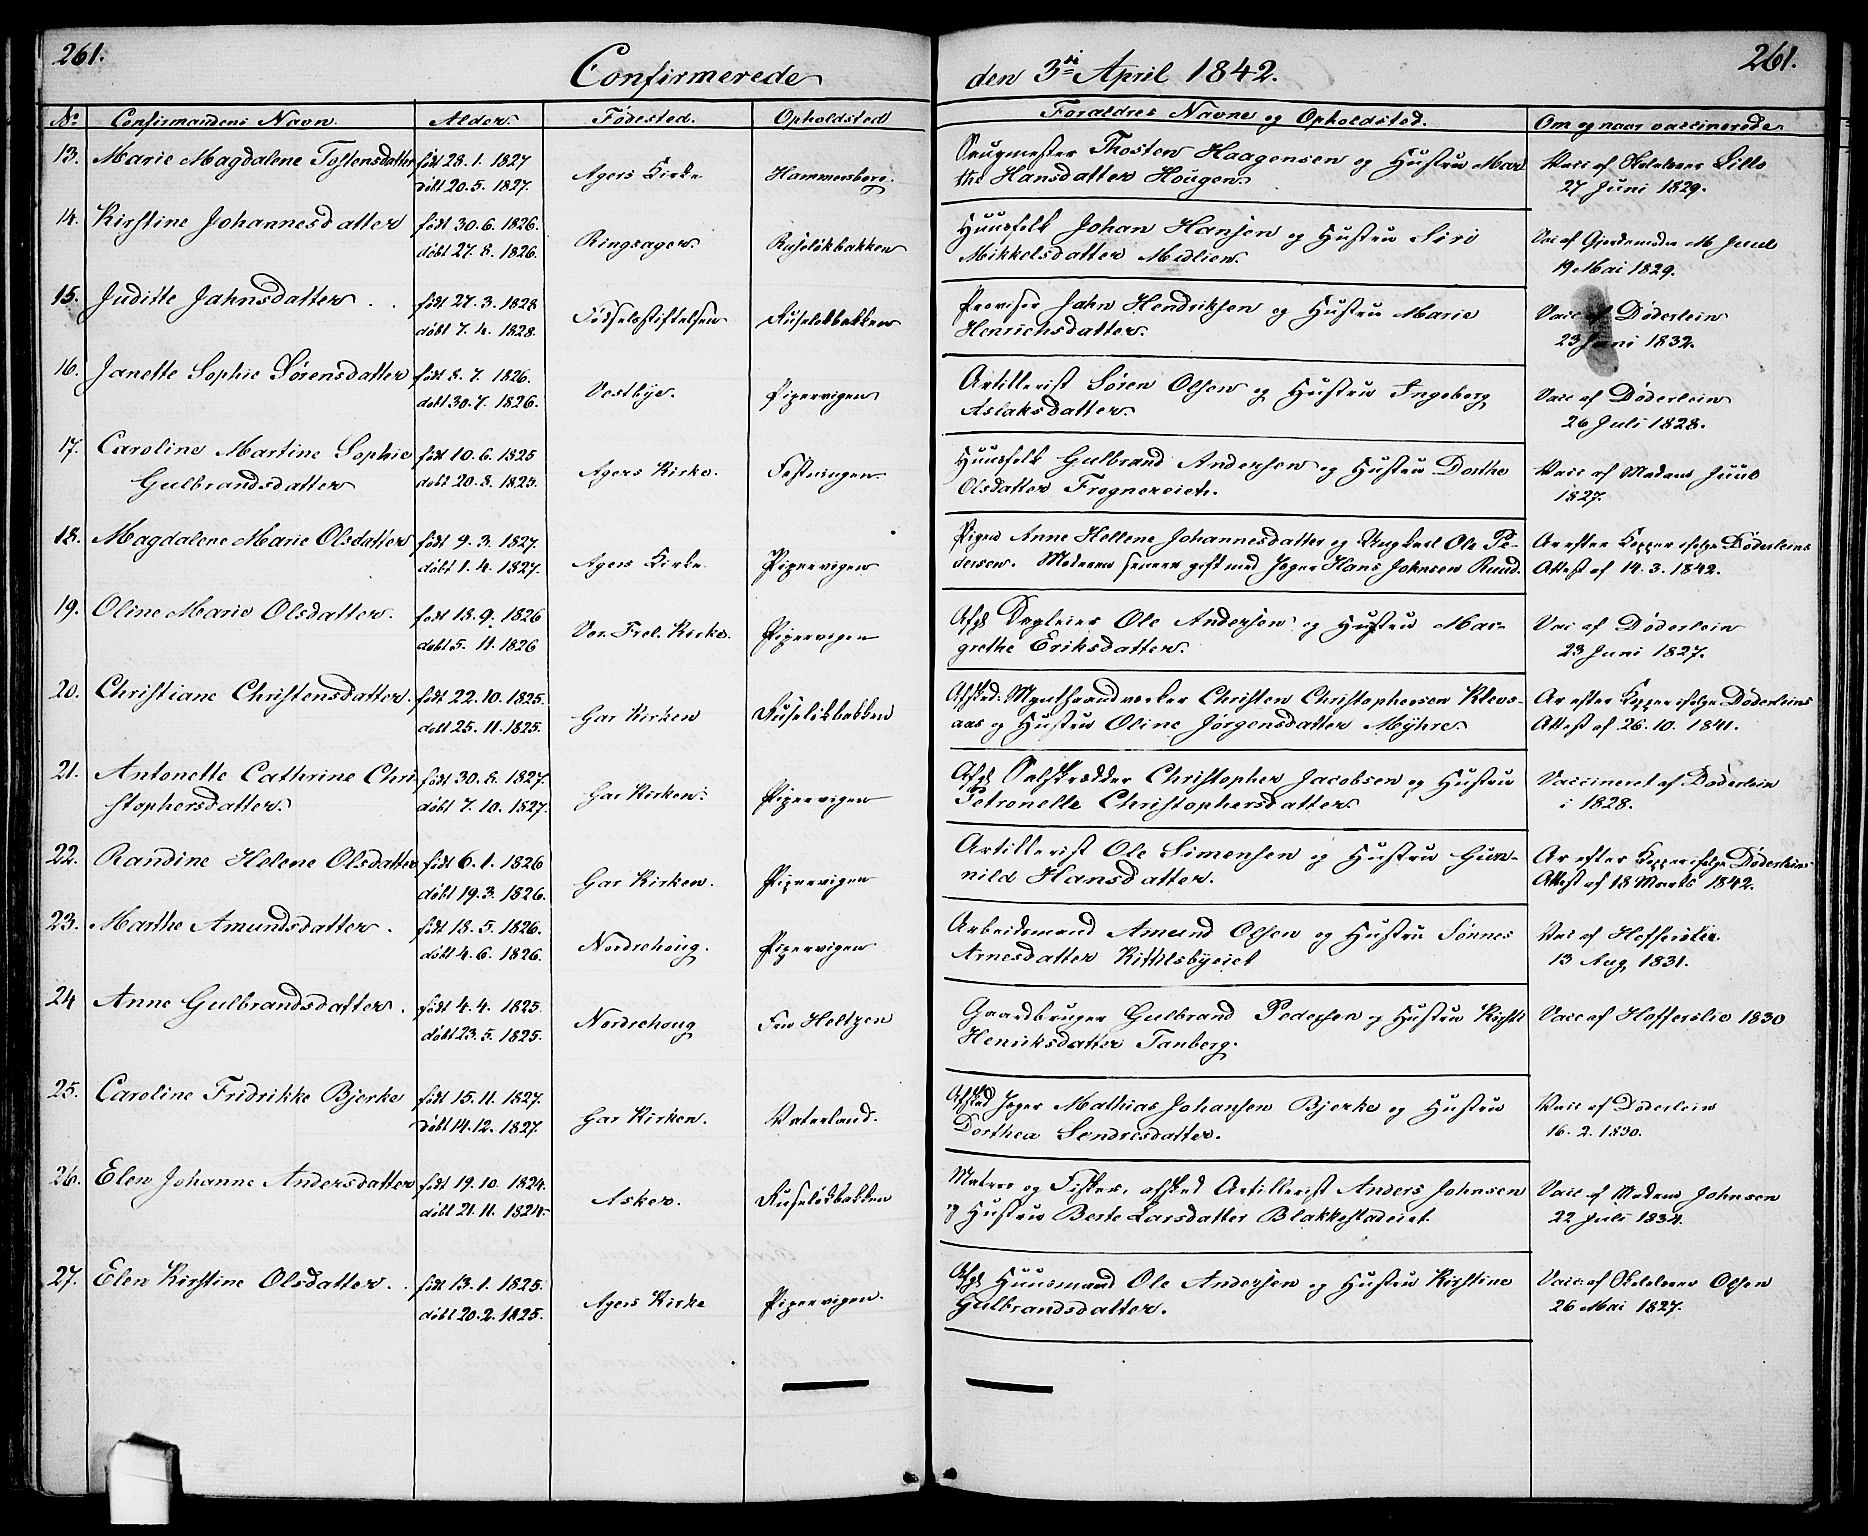 261.
Confirmerede den 3di April 1842.
261.
No Confirmandens Navn. Alder. Fødested. Opholdsted Forældres Navne og Opholdsted. Om og naar vaccinerede
13. Marie Magdalene Tostensdatter født 28.1.1827 Agers Kirke Hammersborg. Saugmester Thosten Haagensen og Hustru Mar
døbt 20.5.1827. the Hansdatter Hougen. Vacc af Lillo
27 Juni 1829.
14. Kirstine Johannesdatter født 30.6.1826. Ringsager Ruseløkbakken Huusfolk Johan Hansen og Hustru Siri
døbt 27.8.1826. Mikkelsdatter Midlien. Vac af Gjordemoder M Juul
19 Mai 1829.
15. Juditte Jahnsdatter født 27.3.1828 Fødselsstiftelsen Ruseløkbakken Provisor Jahn Hendriksen og Hustru Marie
døbt 7.4.1828. Henrichsdatter. Vacc af Døderlein
23 Juni 1832.
16. Janette Sophie Sørensdatter født 8.7.1826. Vestbye. Pipervigen Artillerist Søren Olsen og Hustru Ingeborg
døbt 30.7.1826. Aslaksdatter. Vacc af Døderlein
26 Juli 1828.
17. Caroline Martine Sophie født 10.6.1825 Agers Kirke. Festningen. Huusfolk Gulbrand Andersen og Hustru Dorthe
Gulbrandsdatter døbt 20.8.1825. Olsdatter Frognereiet. Vacc af Madam Juul
1827.
18. Magdalene Marie Olsdatter født 9.3.1827. Agers Kirke Pipervigen Pigen Anne Hellene Johannesdatter og Ungkarl Ole Pe-
døbt 1.4.1827. dersen. Moderen senere gift med Jæger Hans Johnsen Ruud. Ar efter Kopper ifølge Døderleins
Attest af 14.3.1842.
19. Oline Marie Olsdatter. født 18.9.1826 Vor. Frel. Kirke. Pipervigen Afg. Dagleier Ole Andersen og Hustru Mar-
døbt 5.11.1826 grethe Eriksdatter. Vac af Døderlein
23 Juni 1827.
20. Christiane Christensdatter. født 22.10.1825. Gar Kirken Ruseløkbakken Afsked: Mynthaandverker Christen Christophersen Klevs-
døbt 25.11.1825. aas og Hustru Oline Jørgensdatter Mÿhre. Ar efter Kopper ifølge Døderleins
Attest af 26.10.1841.
21. Antonette Cathrine Chri født 30.8.1827. Gar Kirken. Pipervigen Afg. Christopher Jacobsen og Hustru
stophersdatter. døbt 7.10.1827. Petronelle Christophersdatter. Vaccineret af Døderlein
i 1828.
22. Randine Helene Olsdatter født 6.1.1826 Gar Kirken. Pipervigen Artillerist Ole Simensen og Hustru Gun-
døbt 19.3.1826. nild Hansdatter. Ar efter Kopper ifølge Døderleins
Attest af 18 Marts 1842.
23. Marthe Amundsdatter. født 18.5.1826. Nordrehoug. Pipervigen Arbeidsmand Amund Olsen og Hustru Sønnes
døbt 4.6.1826. Arnesdatter Kittilsbyeiet Vac af Hofferslie
13 Aug 1831.
24 Anne Gulbrandsdatter. født 4.4.1825. Nordrehoug Fru Heltzen Gaardbruger Gulbrand Pedersen og Hustru Kirsti
døbt 23.5.1825. Henriksdatter Tanberg. Vacc af Hofferslie 1830
25. Caroline Fridrikke Bjerke født 15.11.1827. Gar Kirken. Vaterland. Afsked Jæger Mathias Johansen Bjerke og Hustru
døbt 14.12.1827. Dorthea Sendresdatter. Vacc af Døderlein
16.2.1830.
26. Elen Johanne Andersdatter født 19.10.1824. Asker. Ruseløkbakken Matros og Fisker, afsked Artillerist Anders Johnsen
døbt 21.11.1824. og Hustru Berte Larsdatter Blakkestadeiet. Vacc af Madam Johnsen
22 Juli 1834.
27. Elen Kirstine Olsdatter. født 13.1.1825. Agers Kirke Pipervigen. Afg. Huusmand Ole Andersen og Hustru Kirstine
døbt 20.2.1825. Gulbrandsdatter. Vacc. af Olsen
26 Mai 1827.